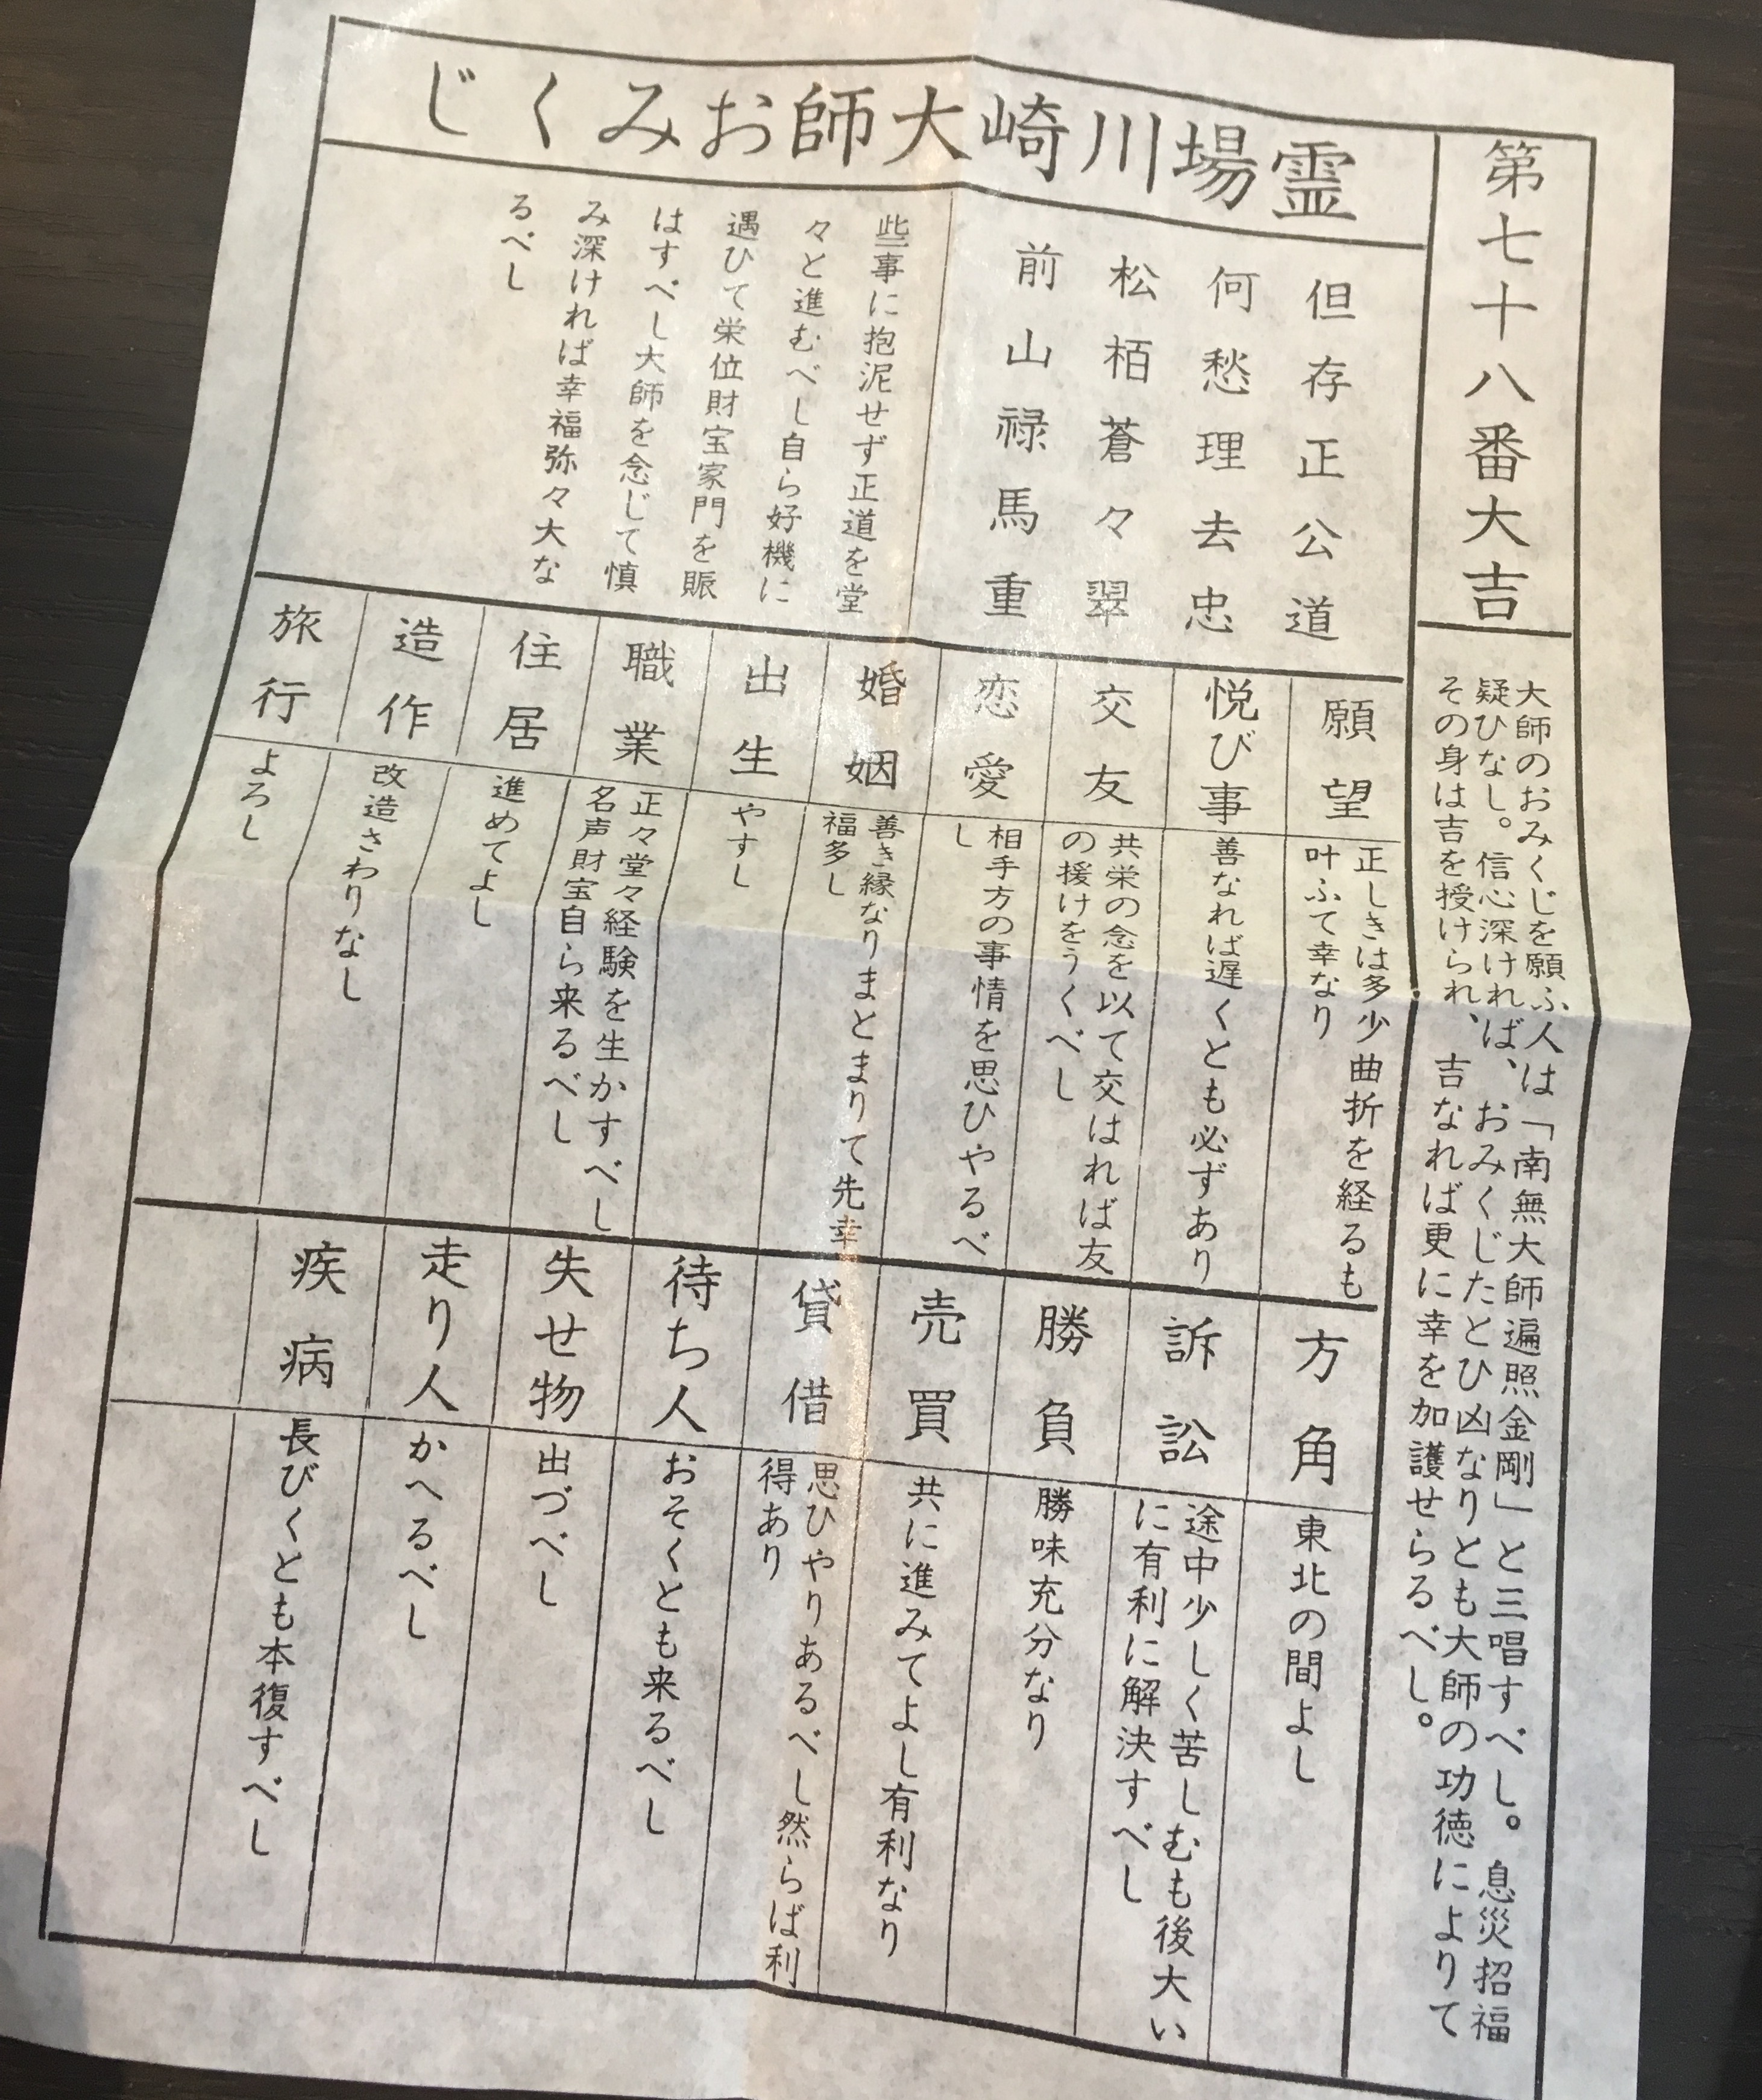 第七十八番大吉
大師のおみくじを願ふ人は「南無大師遍照金剛」と三唱すべし。息災招福
疑ひなし。信心深ければ、おみくじたとひ凶なりとも大師の功徳によりて
その身は吉を授けられ、吉なれば更に幸を加護せらるべし。
霊場川崎大師おみくじ
但存正公道
何愁理去忠
松栢蒼々翠
前山禄馬重
些事に抱泥せず正道を堂
々と進むべし自ら好機に
遇ひて栄位財宝家門を賑
はすべし大師を念じて慎
み深ければ幸福弥々大な
るべし
願望
正しきは多少曲折を経るも
叶ふて幸なり
悦び事
善なれば遅くとも必ずあり
交友
共栄の念を以て交はれば友
の援けをうくべし
恋愛
相手方の事情を思ひやるべ
し
婚姻
善き縁なりまとまりて先幸
福多し
出生
やすし
職業
正々堂々経験を生かすべし
名声財宝自ら来るべし
住居
進めてよし
造作
改造さわりなし
旅行
よろし
方角
東北の間よし
訴訟
途中少しく苦しむも後大い
に有利に解決すべし
勝負
勝味充分なり
売買
共に進みてよし有利なり
貸借
思ひやりあるべし然らば利
得あり
待ち人
おそくとも来るべし
失せ物
出づべし
走り人
かへるべし
疾病
長びくとも本復すべし